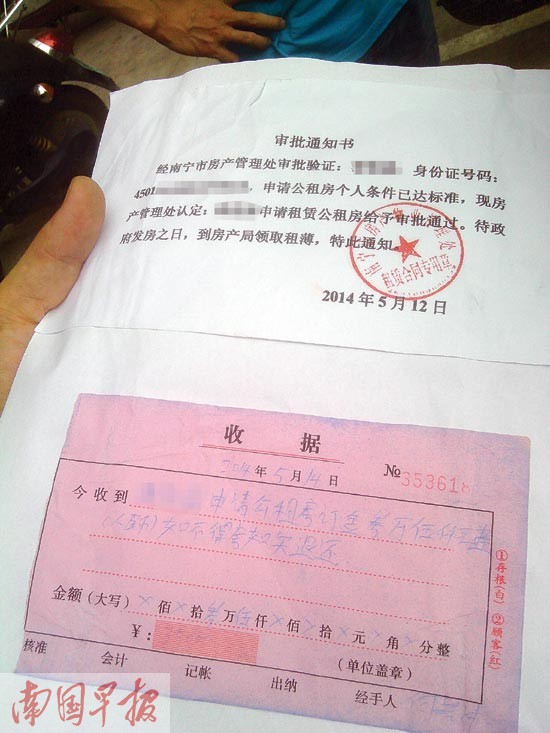 审批通知书
经南宁市房产管理处审批验证： 身份证号码：
4501 ，申请公租房个人条件已达标准，现房
产管理处认定： 申请租赁公租房给予审批通过。待政
府发房之日，到房产局领取租薄，特此通知。
租赁合同专用章
2014年5月12日
收 据
2014年5月14日
№353618
今收到 申请公租房订金叁万伍仟
如不得房如实退还
①存根(白) ②顾客(红)
金额（大写）×佰×拾叁万伍仟×佰×拾×元×角×分整
￥：
（单位盖章）
核准 会计 记帐 出纳 经手人
南国早报